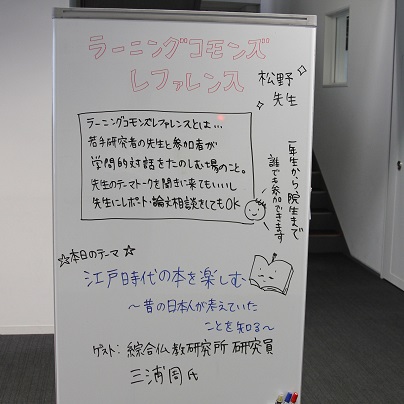 ラーニングコモンズ
レファレンス
松野
先生
ラーニングコモンズレファレンスとは…
若手研究者の先生と参加者が
学問的対話をたのしむ場のこと。
先生のテーマトークを聞きに来てもいいし
先生にレポート・論文相談をしてもOK
一年生から、院生まで
誰でも参加できます
☆本日のテーマ☆
江戸時代の本を楽しむ
～昔の日本人が考えていた
ことを知る～
ゲスト：綜合仏教研究所 研究員
三浦周氏